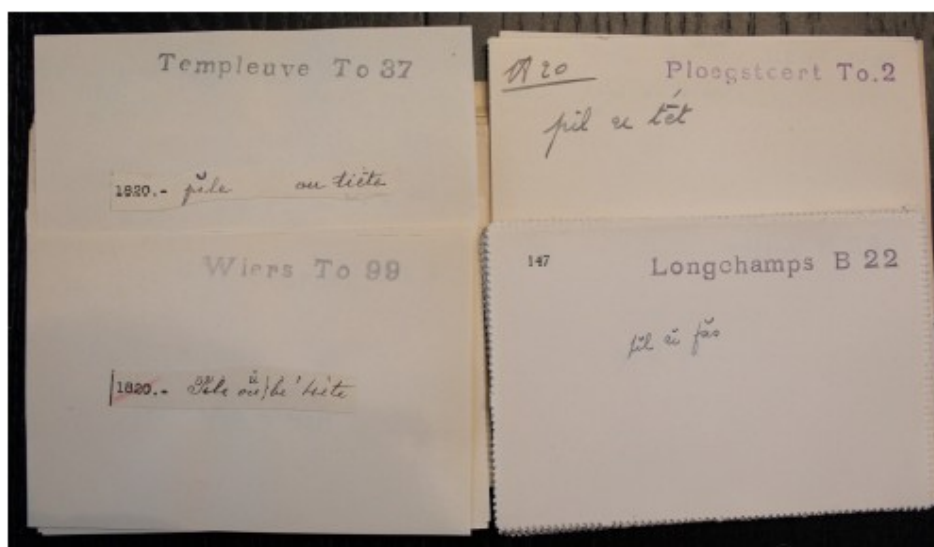 Templeuve To 37
1820.- pĭle ou tiète
Wiers To 99
1820.- Pile
1820
Ploegstcert To.2
pil u tét
147
Longchamps B 22
pil ŭ făs